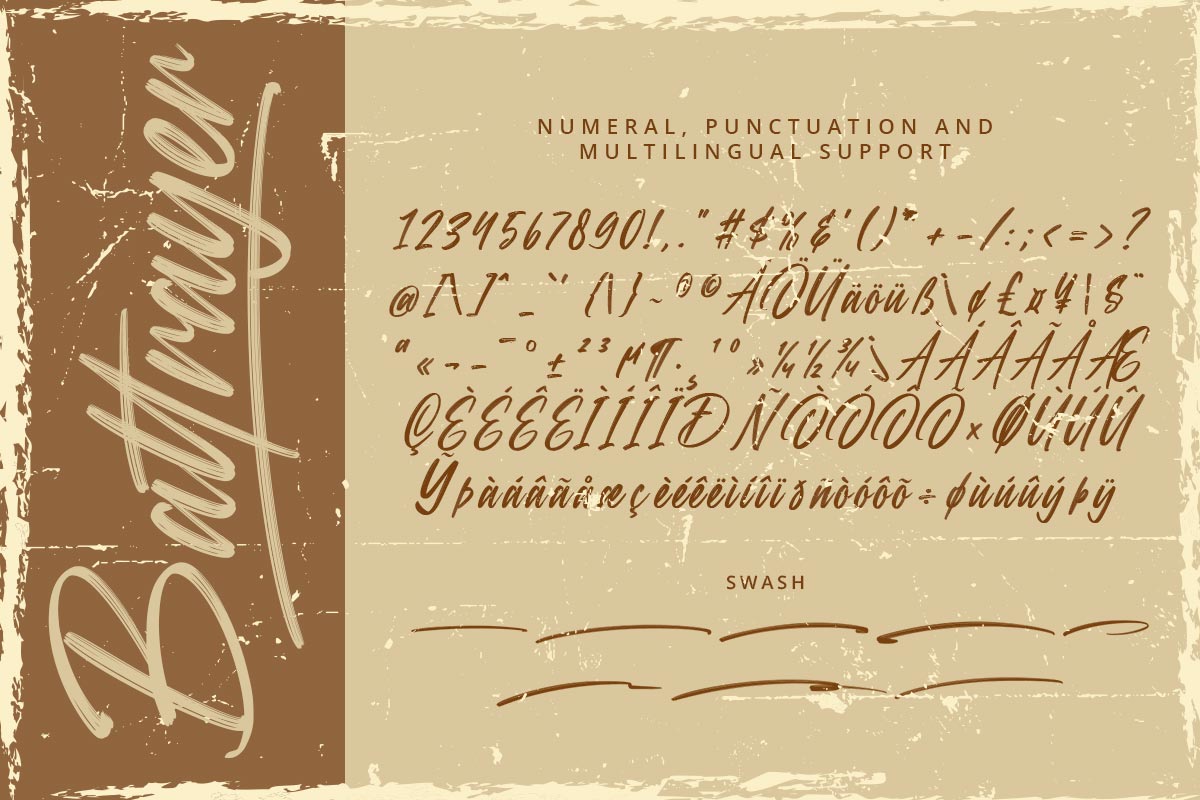 Battrayen
NUMERAL, PUNCTUATION AND
MULTILINGUAL SUPPORT
1234567890!,."#$%&'()*+-/:;<=>?
@[\]^_`'{|}~®©ÄÖÜäöüß\¢£¤¥¦§¨
ª«¬-¯°±²³µ¶·¸¹º»¼½¾\ÀÁÂÃÅÆ
ÇÈÉÊËÌÍÎÏÐÑÒÓÔÕ×ØÙÚÛ
ÝÞàáâãåæçèéêëìíîïðñòóôõ÷øùúûýþÿ
SWASH